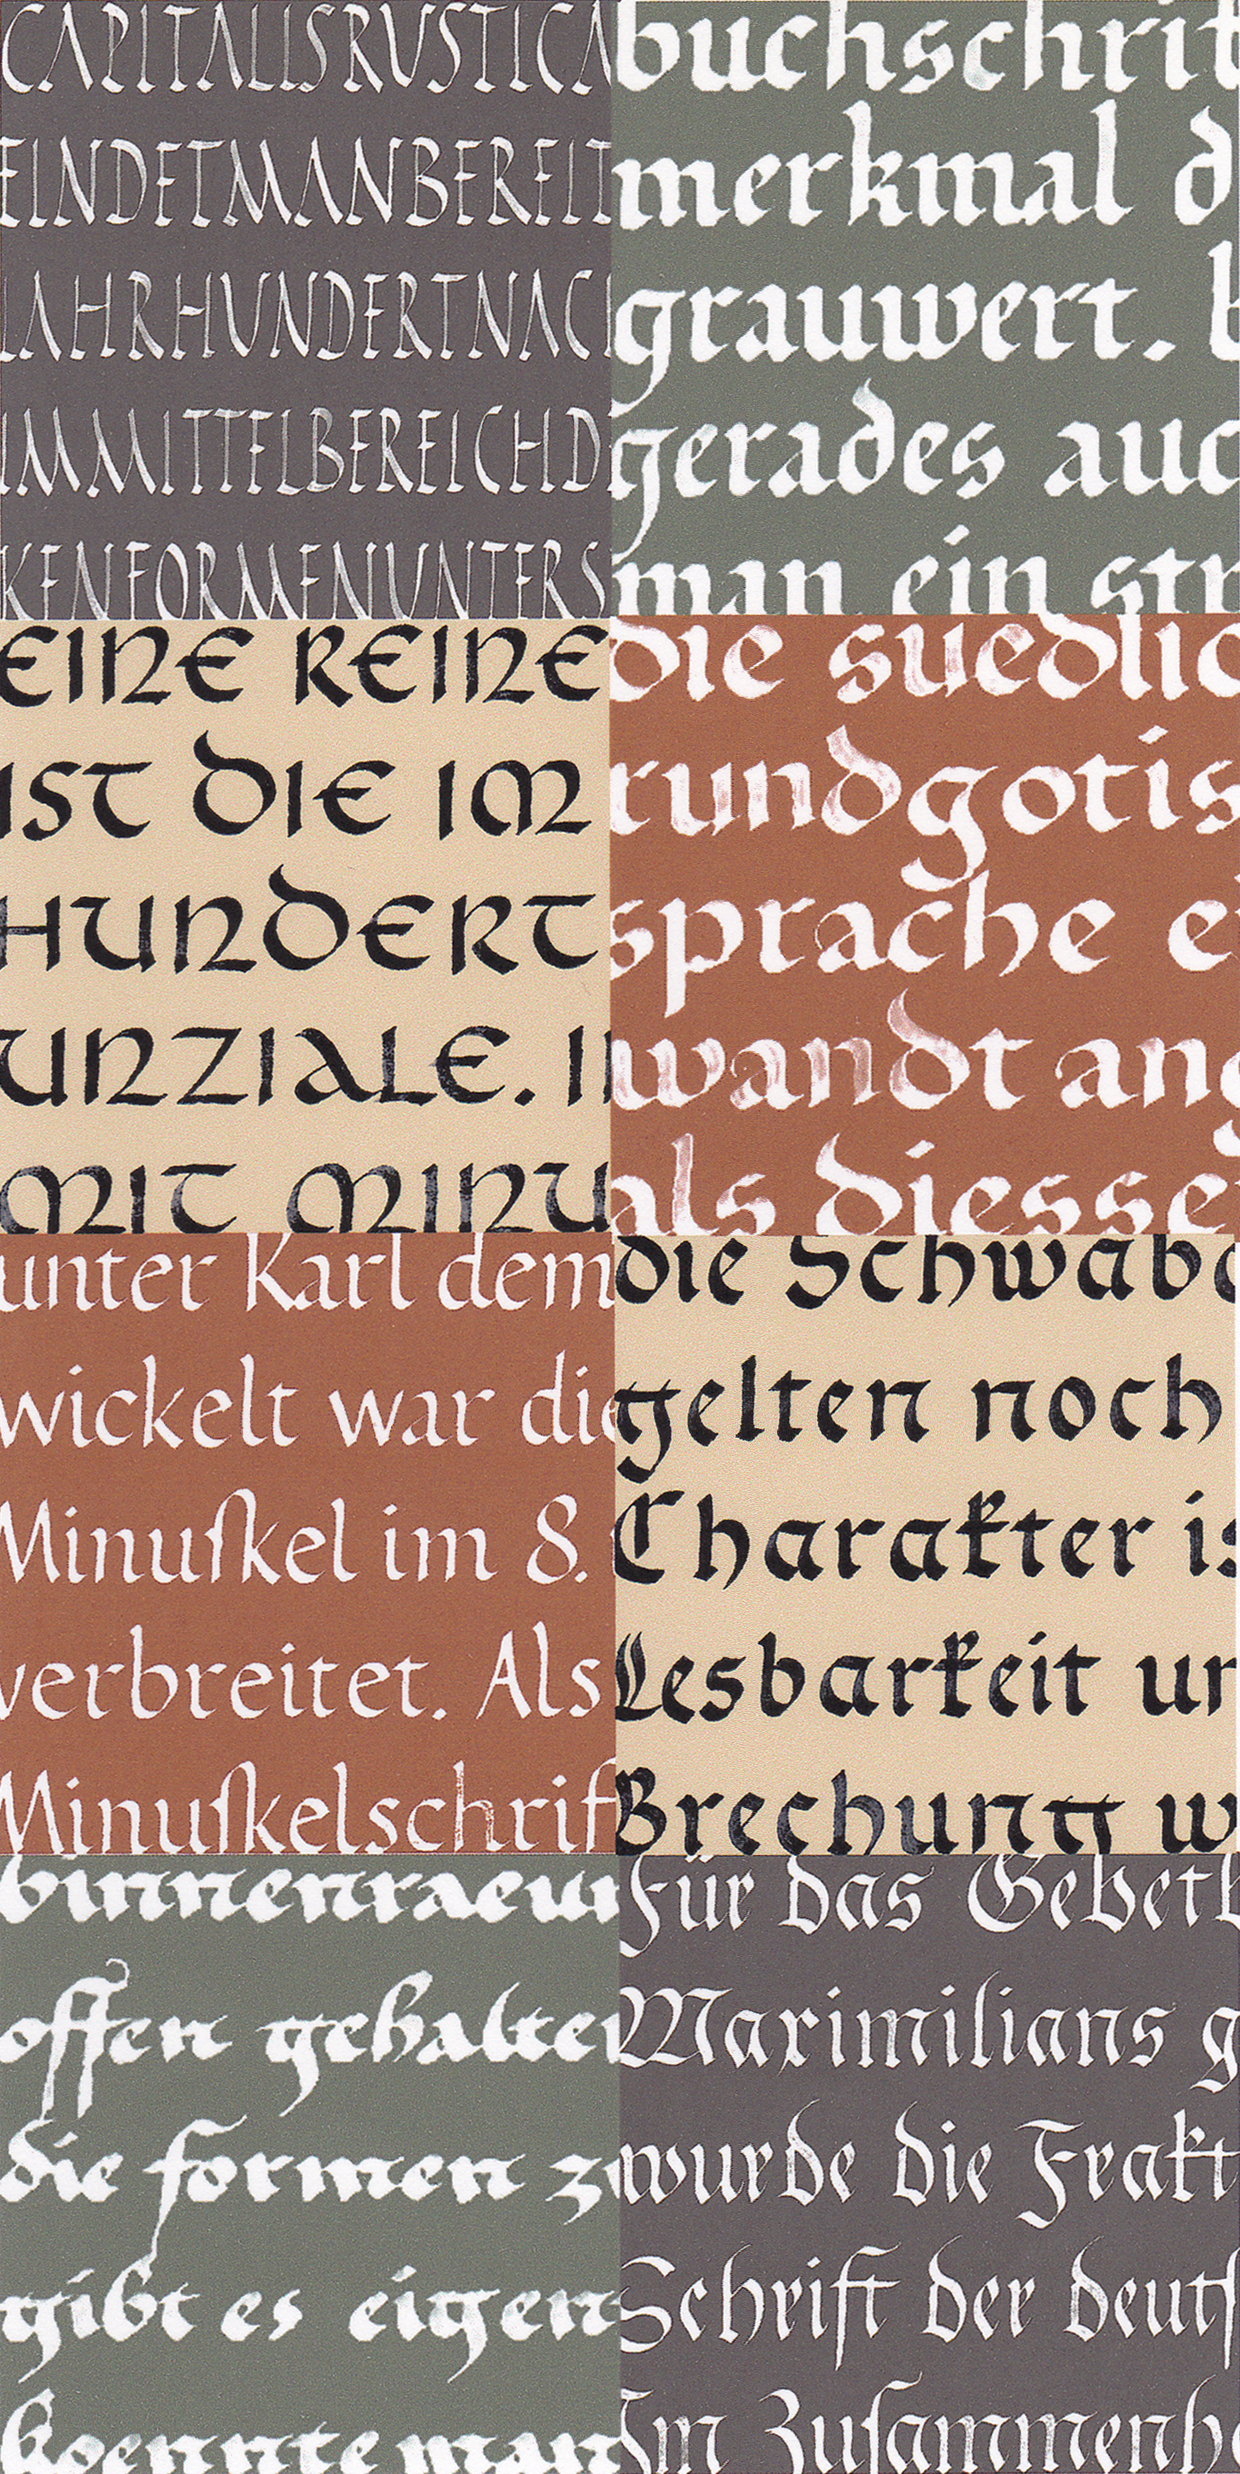 CAPITALISRUSTICA
FINDETMANBEREIT
JAHRHUNDERTNAC
IMMITTELBEREICHD
KENFORMENUNTERS
buchschrit
merkmal d
grauwert. b
gerades auc
man ein str
EINE REINE
IST DIE IM
HUNDERT
UNZIALE. I
MIT MINU
die suedlic
rundgotis
sprache e
wandt ang
als diesse
unter Karl dem
wickelt war die
Minuſkel im 8.
verbreitet. Als
Minuſkelschrif
die Schwab
gelten noch
Charakter is
Lesbarkeit un
Brechung w
binnenraeum
offen gehalten
die formen zu
gibt es eigen
koennte man
Für das Gebetb
Maximilians g
wurde die Frakt
Schrift der deutſ
Im Zuſammenh